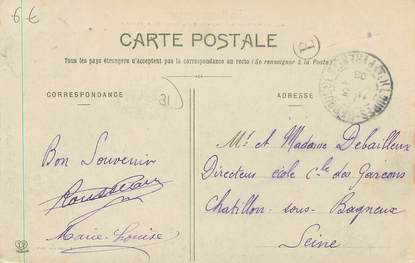 6€
CARTE POSTALE
Tous les pays étrangers n'acceptent pas la correspondance au recto (Se renseigner à la Poste)
CORRESPONDANCE
ADRESSE
31
Bon Souvenir
Rousseau
Marie-Louise
Mr et Madame Debailleux
Directeur école Cle des Garçons
Chatillon-sous-Bagneux
Seine